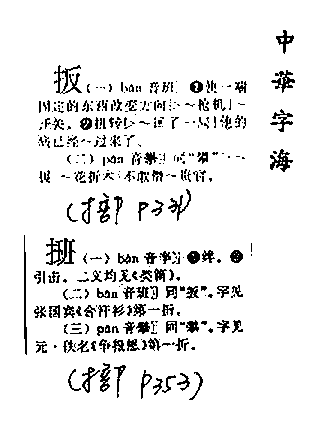 中華字海
扳(一)bān 音班 ❶使一端
固定的东西改变方向:~枪机|~
开关。❷扭转:~回了一局|他的
病已经~过来了。
(二)pān 音攀 同“攀”
花折木 不敢 
(扌部 P331)
(一)bān 音 ❶绊。❷
引击。二义均见《类篇》。
(二)bān 音班 同“扳”。字见
张国宾《合汗衫》第一折。
(三)pān 音攀 同“攀”。字见
元·佚名《争报恩》第一折。
(扌部 P353)